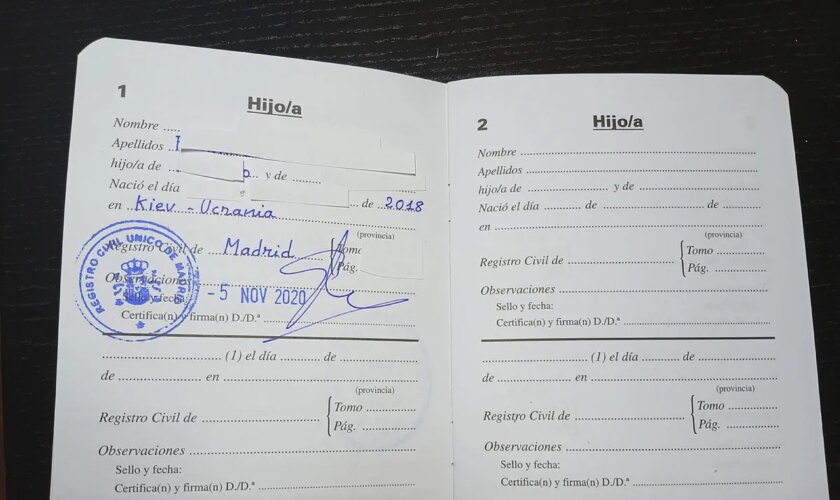 1
Hijo/a
Nombre .....
Apellidos ..
hijo/a de ..... y de .......
Nació el día ..... de 2018
en Kiev - Ucrania
(provincia)
Registro Civil de Madrid Tomo
Pág.
Observaciones
Sello y fecha: - 5 NOV 2020
Certifica(n) y firma(n) D./D.ª
REGISTRO CIVIL UNICO DE MADRID
(1) el día ........... de ....................
de .................. en ..............................
(provincia)
Registro Civil de ............................ Tomo ............
Pág. ..............
Observaciones ..............................
Sello y fecha:
Certifica(n) y firma(n) D./D.ª ..............................
2
Hijo/a
Nombre ..............................
Apellidos ..............................
hijo/a de ...................... y de ..............................
Nació el día ........... de ..................... de .............
en ..............................
(provincia)
Registro Civil de ............................ Tomo ............
Pág. ..............
Observaciones ..............................
Sello y fecha:
Certifica(n) y firma(n) D./D.ª ..............................
(1) el día ........... de ....................
de .................. en ..............................
(provincia)
Registro Civil de ............................ Tomo ............
Pág. ..............
Observaciones ..............................
Sello y fecha:
Certifica(n) y firma(n) D./D.ª ..............................